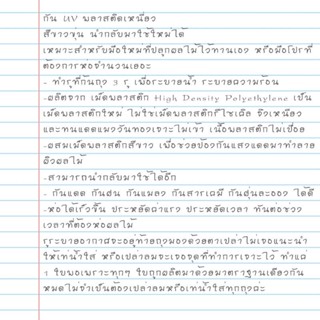 กัน UV พลาสติดเหนียว
สีขาวขุ่น นำกลับมาใช้ใหม่ได้
เหมาะสำหรับมือใหม่ที่ปลูกผลไม้ไว้ทานเอง หรือมือโปรที่
ต้องการห่อจำนวนเยอะ
- ทำรูที่ก้นถุง 3 รู เพื่อระบายน้ำ ระบายความร้อน
-ผลิตจาก เม็ดพลาสติก High Density Polyethylene เป็น
เม็ดพลาสติกใหม่ ไม่ใช่เม็ดพลาสติกรีไซเคิล จึงเหนียว
และทนแดดแมงวันทองเจาะไม่เข้า เนื้อพลาสติกไม่เปื่อย
-ผสมเม็ดพลาสติกสีขาว เพื่อช่วยป้องกันแสงแดดมาทำลาย
ผิวผลไม้
-สามารถนำกลับมาใช้ได้อีก
- กันแดด กันฝน กันแมลง กันสารเคมี กันฝุ่นละออง ได้ดี
-ห่อได้เร็วขึ้น ประหยัดค่าแรง ประหยัดเวลา ทันต่อช่วง
เวลาที่ต้องห่อผลไม้
รูระบายอากาศจะอยู่ท้ายถุงมองด้วยตาเปล่าไม่เจอแนะนำ
ให้เทน้ำใส่ หรือเปล่าลมจะเจอจุดที่ทำการเจาะไว้ ทำแค่
1 ใบพอเพราะทุกๆ ใบถูกผลิตมาด้วยมาตราฐานเดียวกัน
หมดไม่จำเป็นต้องเปล่าลมหรือเทน้ำใส่ทุกถุงค่ะ